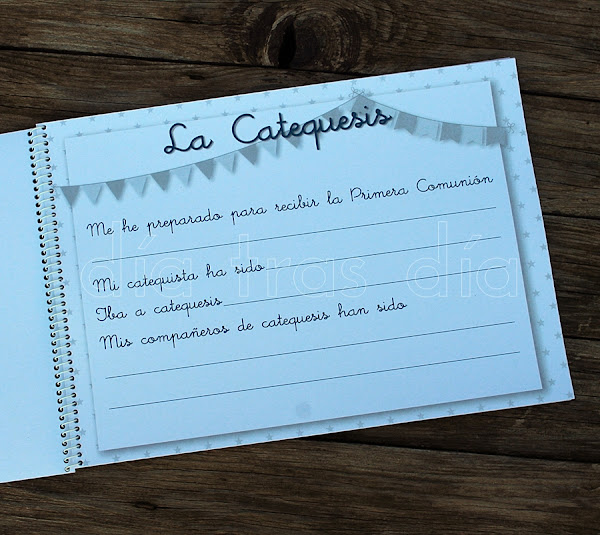 La Catequesis
Me he preparado para recibir la Primera Comunión
Mi catequista ha sido
día tras día
Iba a catequesis
Mis compañeros de catequesis han sido